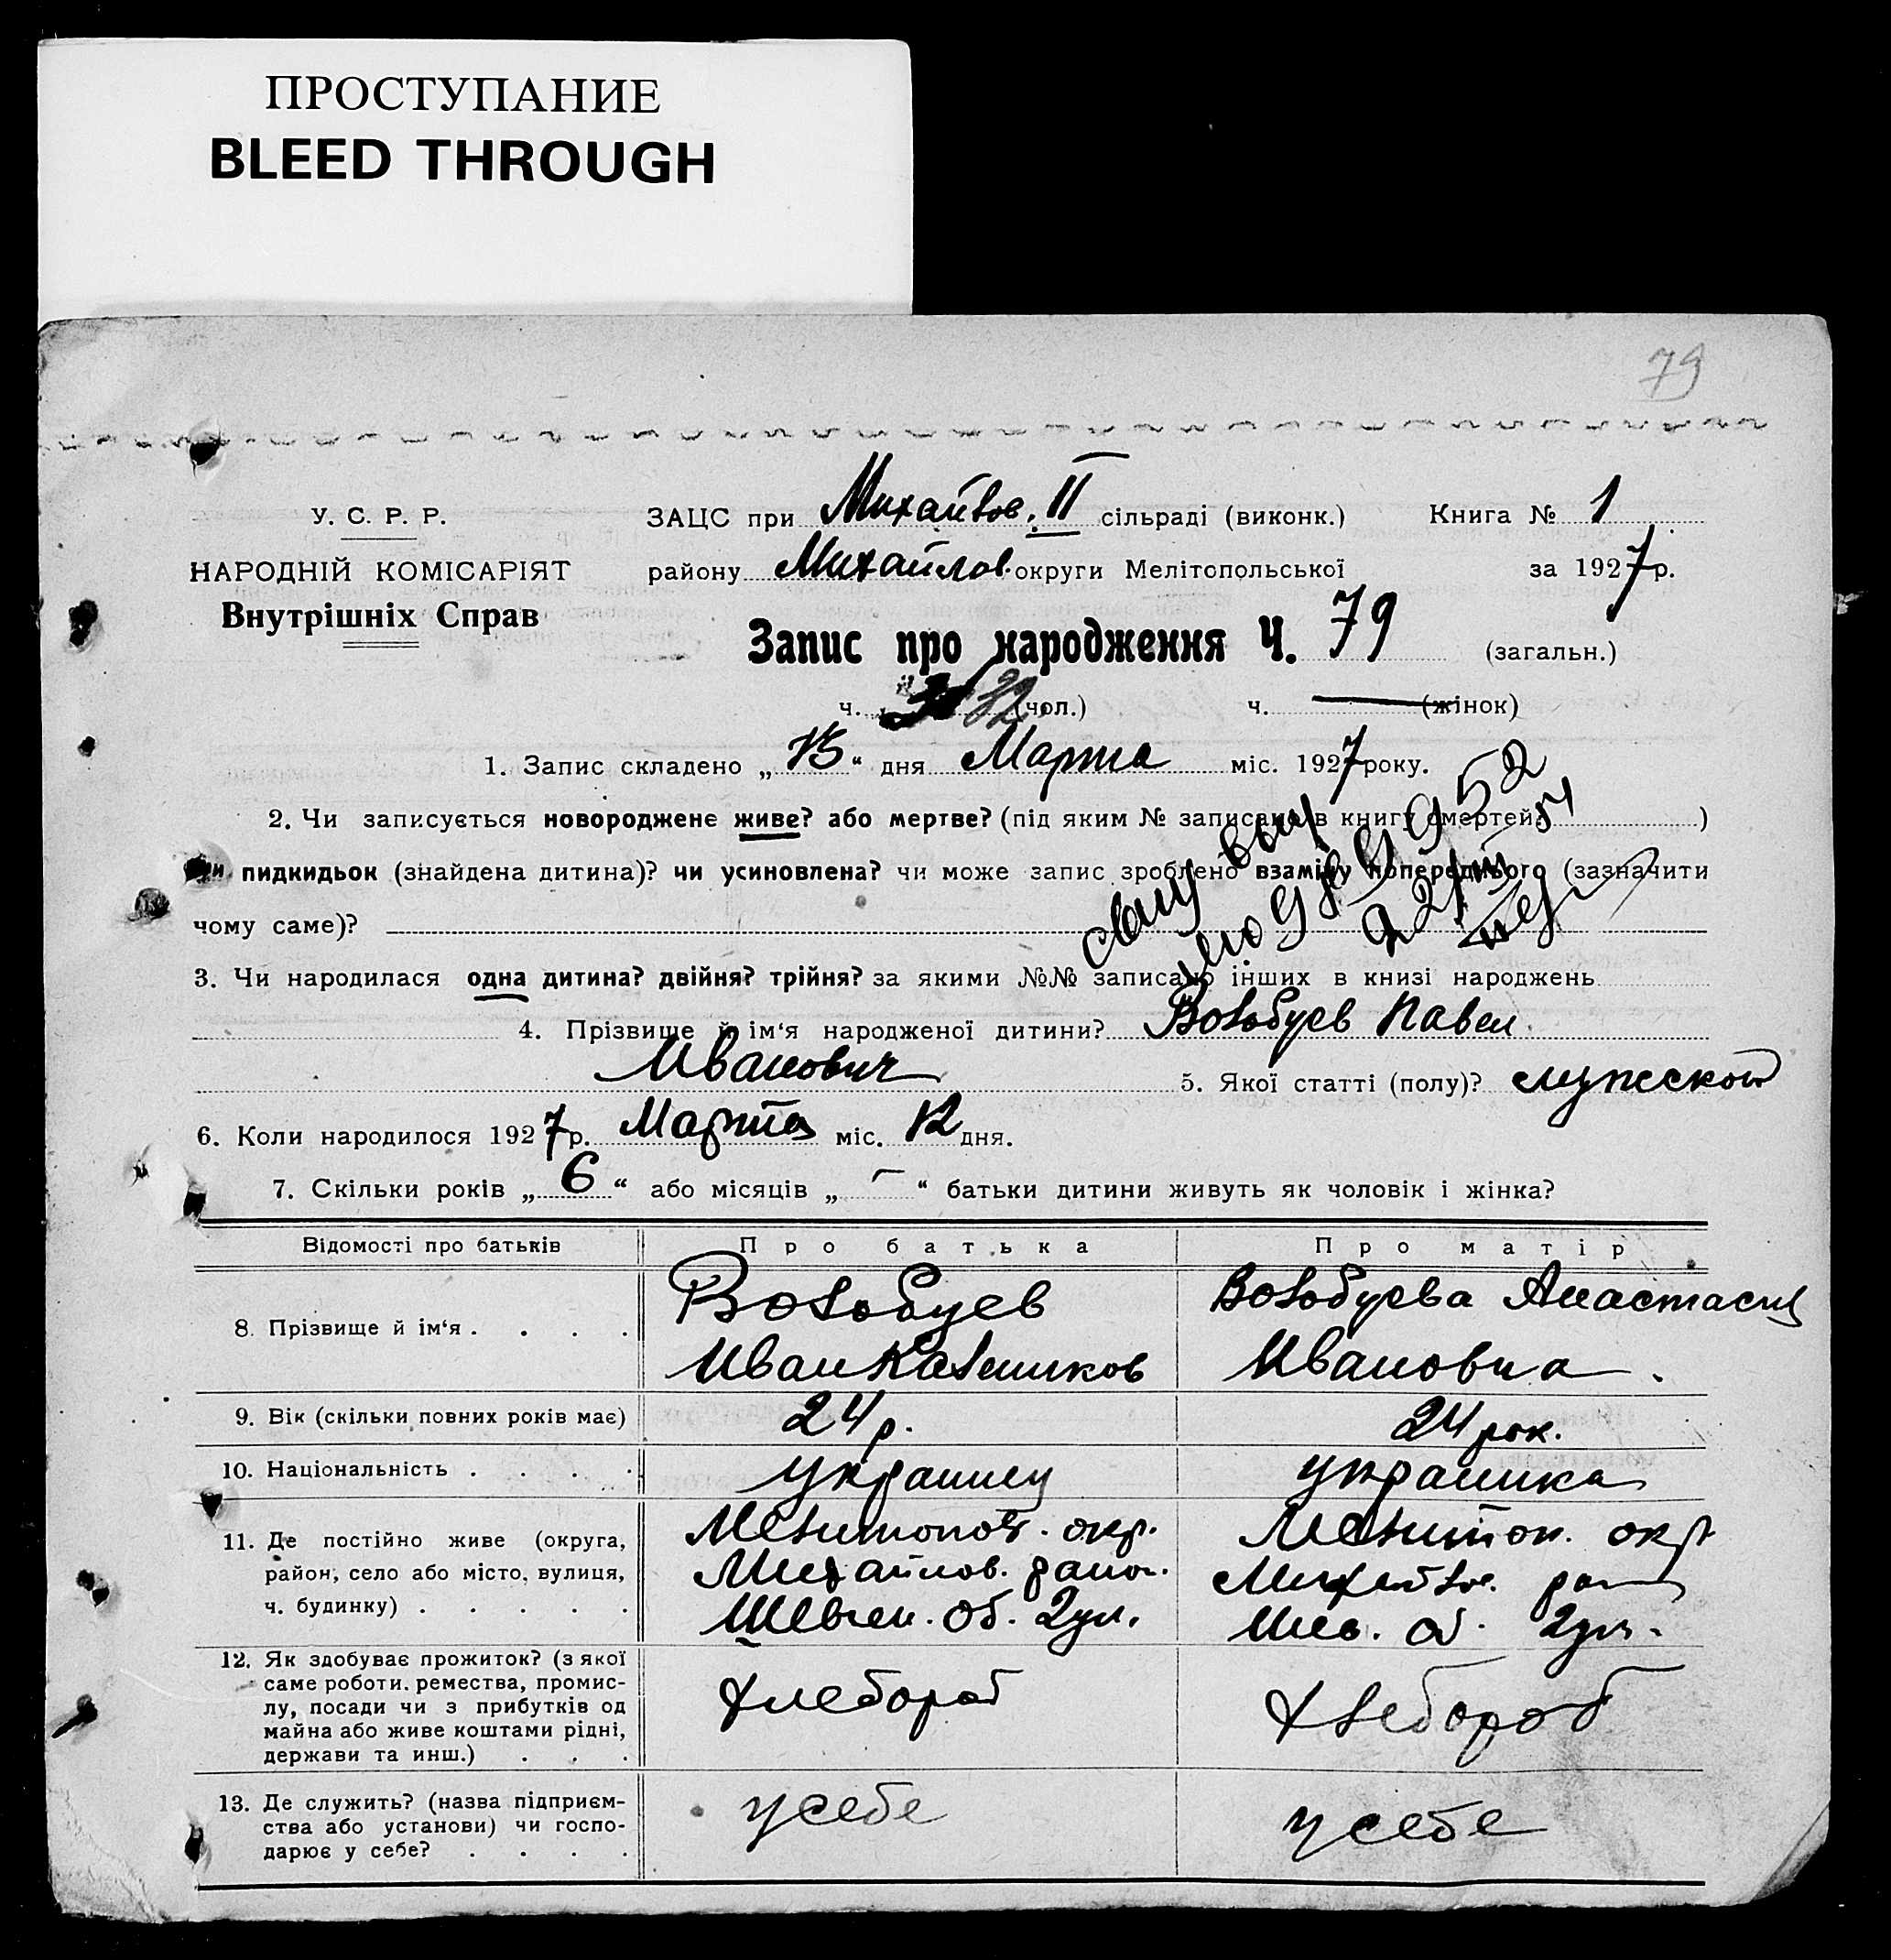 ПРОСТУПАНИЕ
BLEED THROUGH
79
У. С. Р. Р.
НАРОДНІЙ КОМІСАРІЯТ
Внутрішніх Справ
ЗАЦС при Михайлов. II сільраді (виконк.) Книга № 1
району Михайлов. округи Мелітопольської за 1927 р.
Запис про народження Ч. 79 (загальн.)
ч. 32 (чол.) ч. — (жінок)
1. Запис складено „15“ дня Марта міс. 1927 року.
2. Чи записується новороджене живе? або мертве? (під яким № записано в книгу смертей )
чи пидкидьок (знайдена дитина)? чи усиновлена? чи може запис зроблено взаміну попереднього (зазначити
чому саме)?
3. Чи народилася одна дитина? двійня? трійня? за якими №№ записано інших в книзі народжень
4. Прізвище й ім‘я народженої дитини? Волобуев Павел
Иванович 5. Якої статті (полу)? мужской
6. Коли народилося 1927 р. Марта міс. 12 дня.
7. Скільки років „6“ або місяців „—“ батьки дитини живуть як чоловік і жінка?
Відомості про батьків Про батька Про матір
8. Прізвище й ім‘я . . . . Волобуев Волобуева Анастасия
Иван Ивановна.
9. Вік (скільки повних років має) 24 р. 24 рок.
10. Національність . . . . украинец украинка
11. Де постійно живе (округа, Мелитопол. окр. Мелитоп. окр
район, село або місто, вулиця, Михайлов. район. Михайлов. район
ч. будинку) . . . . . Шевчен. об. 2 ул. Шев. об. 2 ул.
12. Як здобуває прожиток? (з якої
саме роботи, ремества, промис-
лу, посади чи з прибутків од хлебороб хлебороб
майна або живе коштами рідні,
держави та инш.) . . .
13. Де служить? (назва підприєм-
ства або установи) чи госпо- у себе у себе
дарює у себе? . . . .